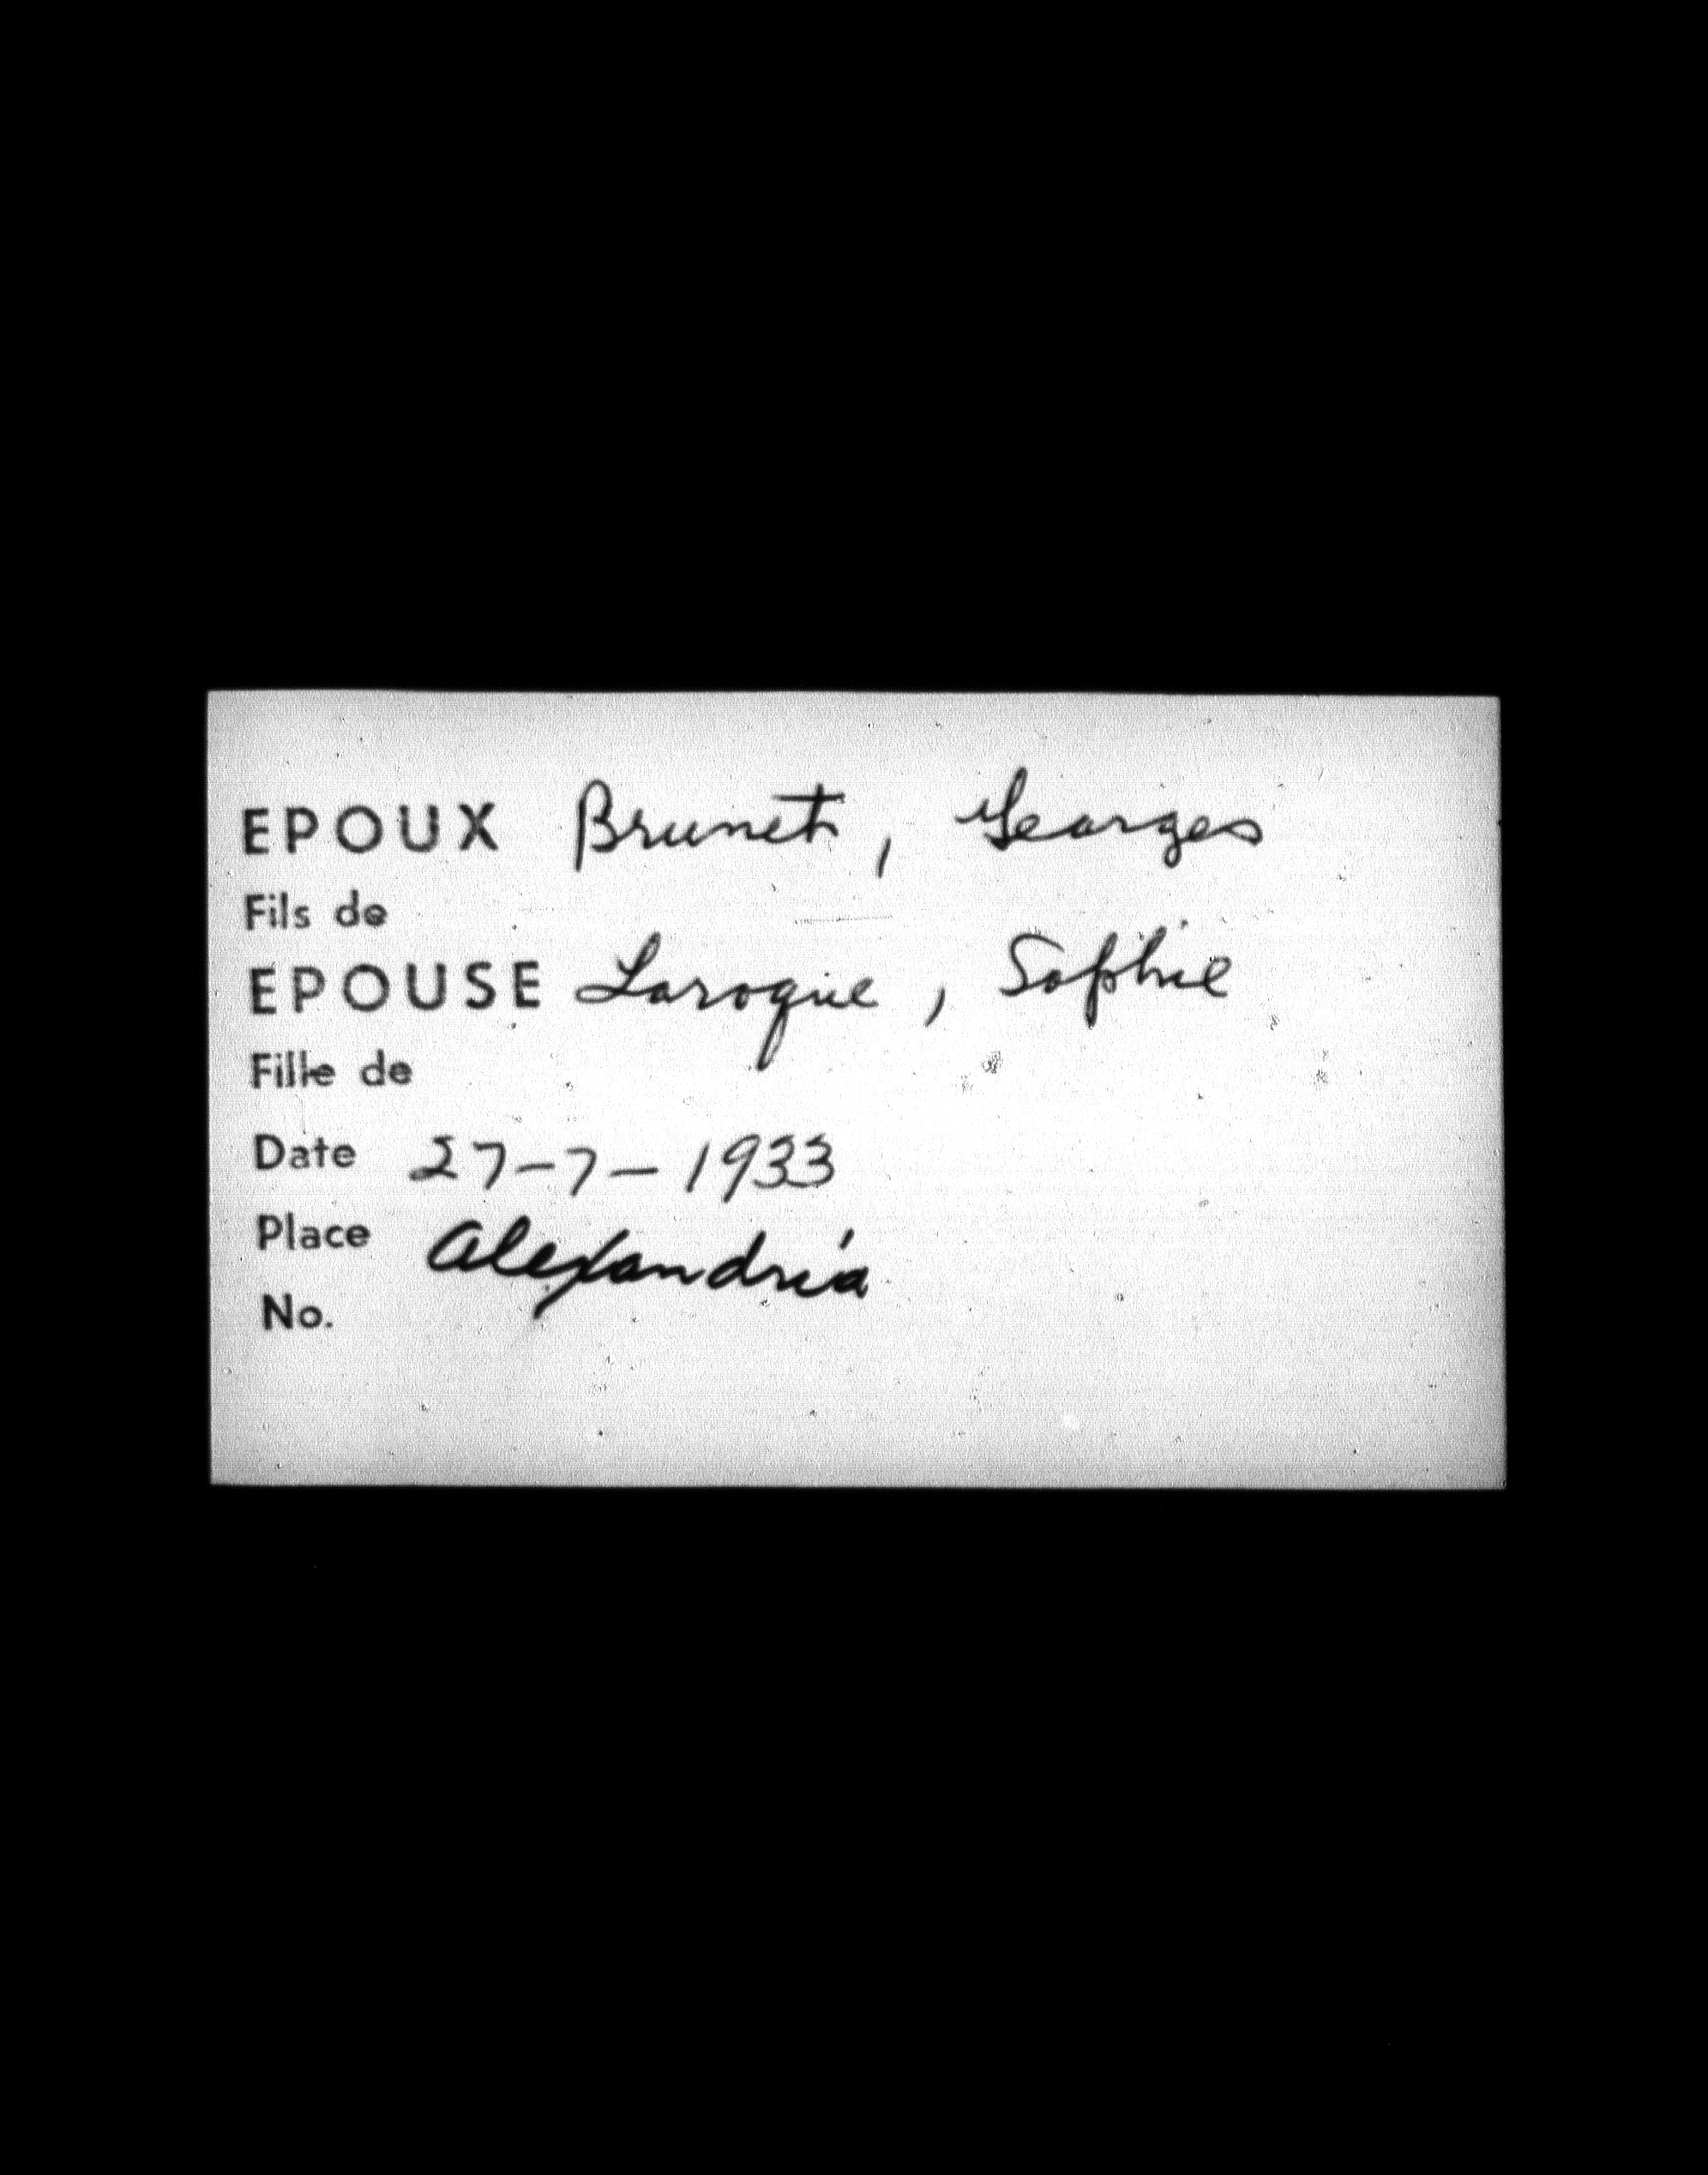 EPOUX Brunet, Georges
Fils de
EPOUSE Laroque, Sophie
Fille de
Date 27-7-1933
Place Alexandria
No.